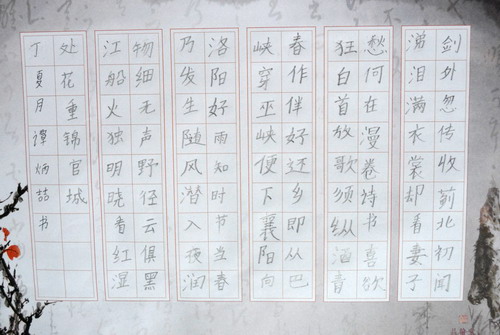 剑外忽传收蓟北初闻
涕泪满衣裳却看妻子
愁何在漫卷诗书喜欲
狂白首放歌须纵酒青
春作伴好还乡即从巴
峡穿巫峡便下襄阳向
洛阳好雨知时节当春
乃发生随风潜入夜润
物细无声野径云俱黑
江船火独明晓看红湿
处花重锦官城
丁夏月谭炳喆书